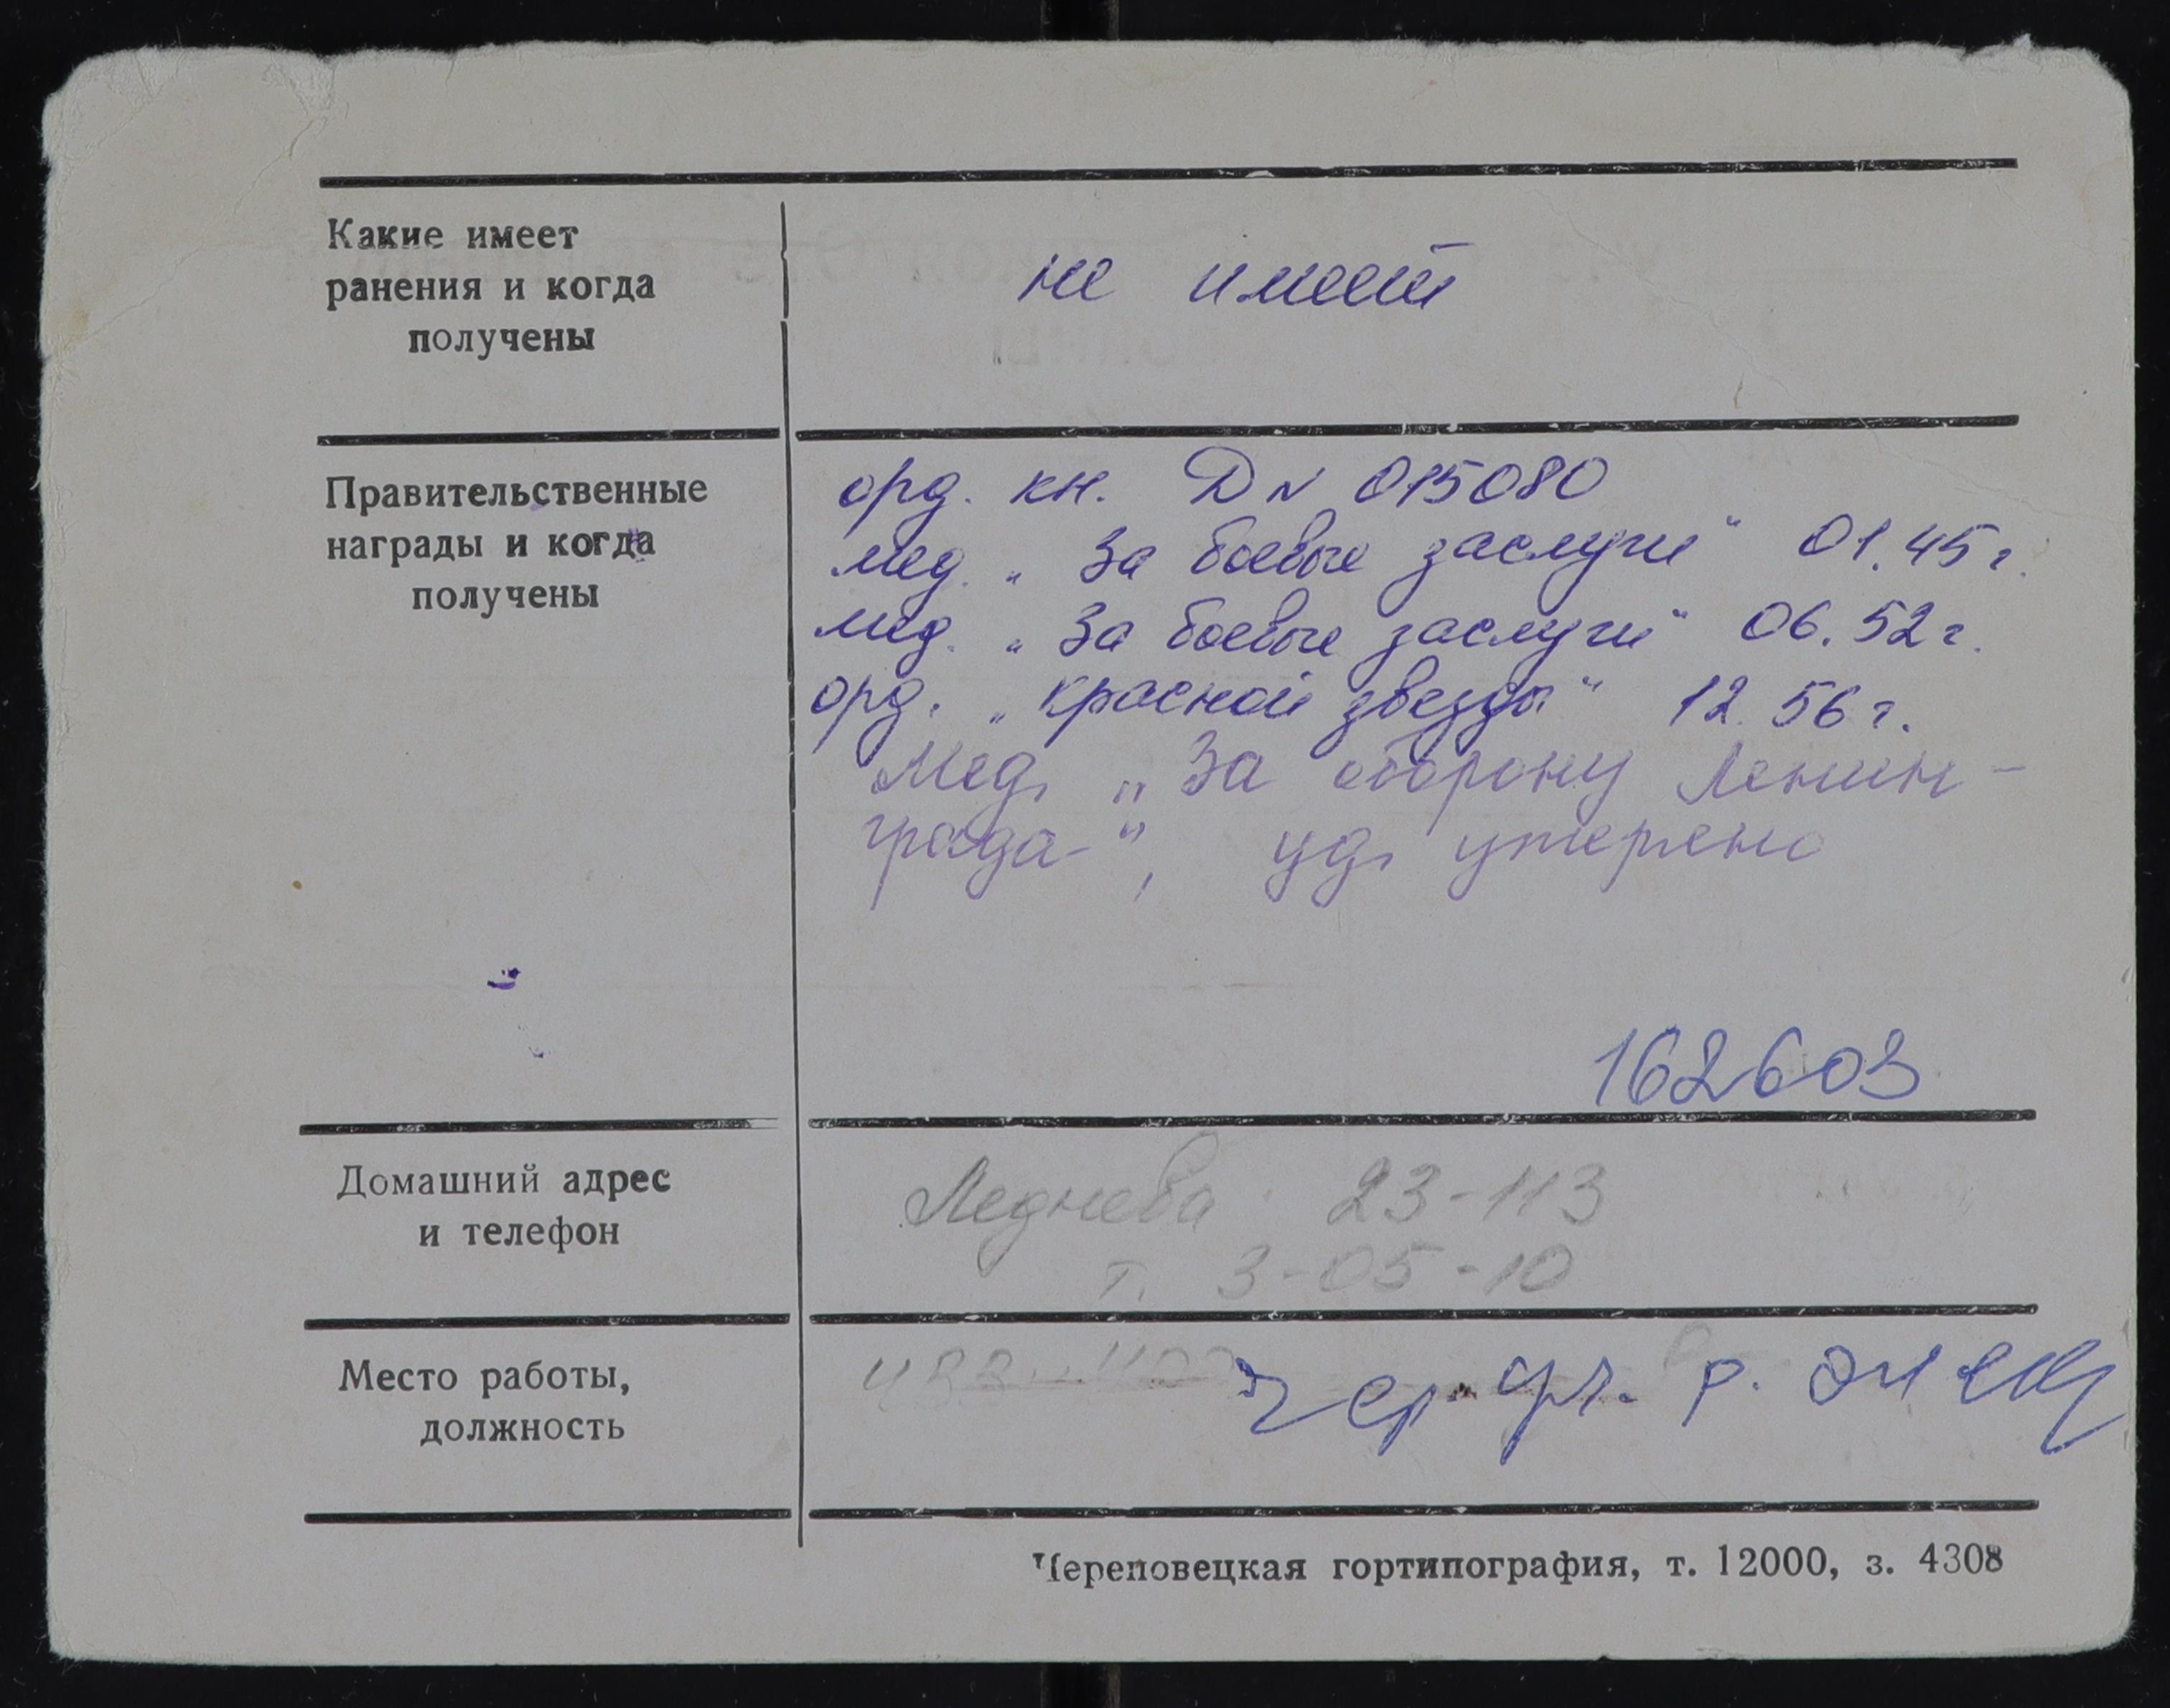 Какие имеет
ранения и когда
получены
не имеет
Правительственные
награды и когда
получены
орд. кн. Д N 015080
мед. „За боевые заслуги“ 01.45 г.
мед. „За боевые заслуги“ 06.52 г.
орд. „Красной звезды“ 12.56 г.
Мед. „За оборону Ленин-
града“, уд. утеряно
162603
Домашний адрес
и телефон
Леднева 23-113
т. 3-05-10
Место работы,
должность
Череповецкая гортипография, т. 12000, з. 4308